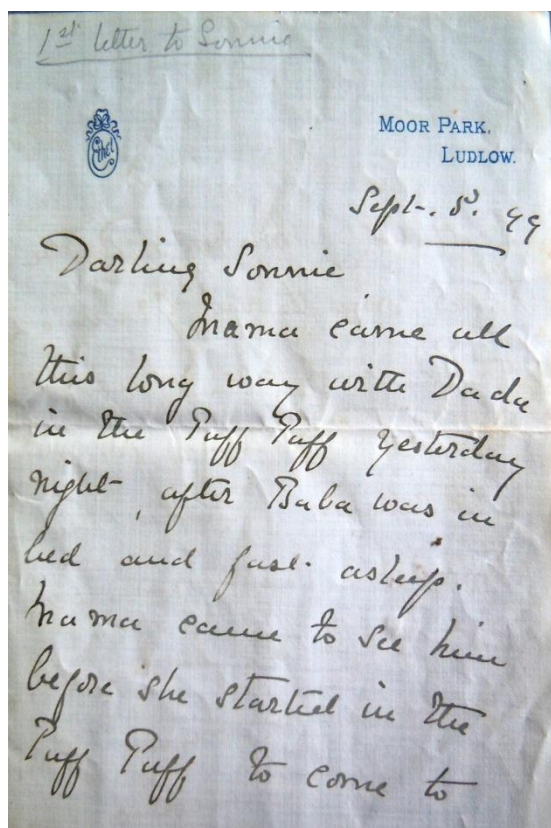 1st letter to Sonnie
Ethel
MOOR PARK,
LUDLOW.
Sept. 5. 99
Darling Sonnie
Mama came all
this long way with Dada
in the Puff Puff yesterday
night, after Baba was in
bed and fast asleep.
Mama came to see him
before she started in the
Puff Puff to come to